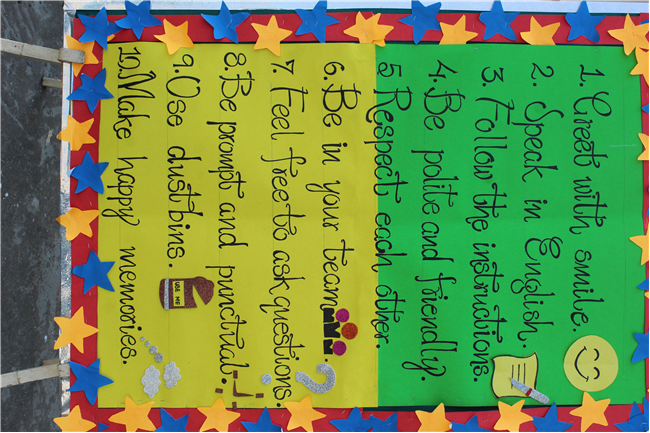 1. Greet with smile.
2. Speak in English.
3. Follow the instructions.
4. Be polite and friendly.
5 Respect each other.
6. Be in your team.
7. Feel free to ask questions.
8. Be prompt and punctual.
9. Use dustbins.
USE ME
10. Make happy memories.